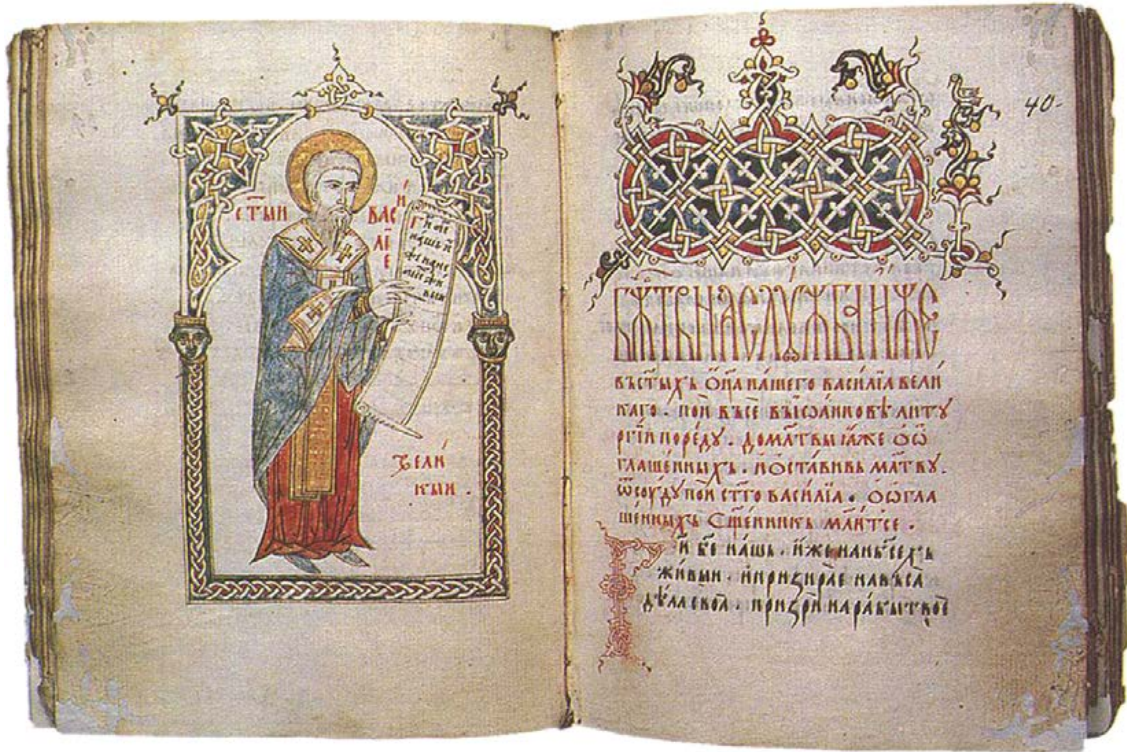 стыи
васиіе
вели
кыи .
40-
бж҃твнаѧ слꙋжба иже
въ ст҃ых оц҃а нашего василіа вели
каго . поѝ въсе въ іѡанновѣ литꙋ
ргіи порѣдꙋ . до мл҃твы ꙗже о ѡ
глашенныхъ . и оставивъ мл҃твꙋ .
ѿсѹдꙋ поѝ ст҃го василіа . о ѡгла
шенныхъ сщ҃енникь мл҃итсе .
Ги б҃е нашь . иже на нб҃сехъ
живыи . и призираѥ на въса
дѣла своꙗ . призри на рабы твоѥ